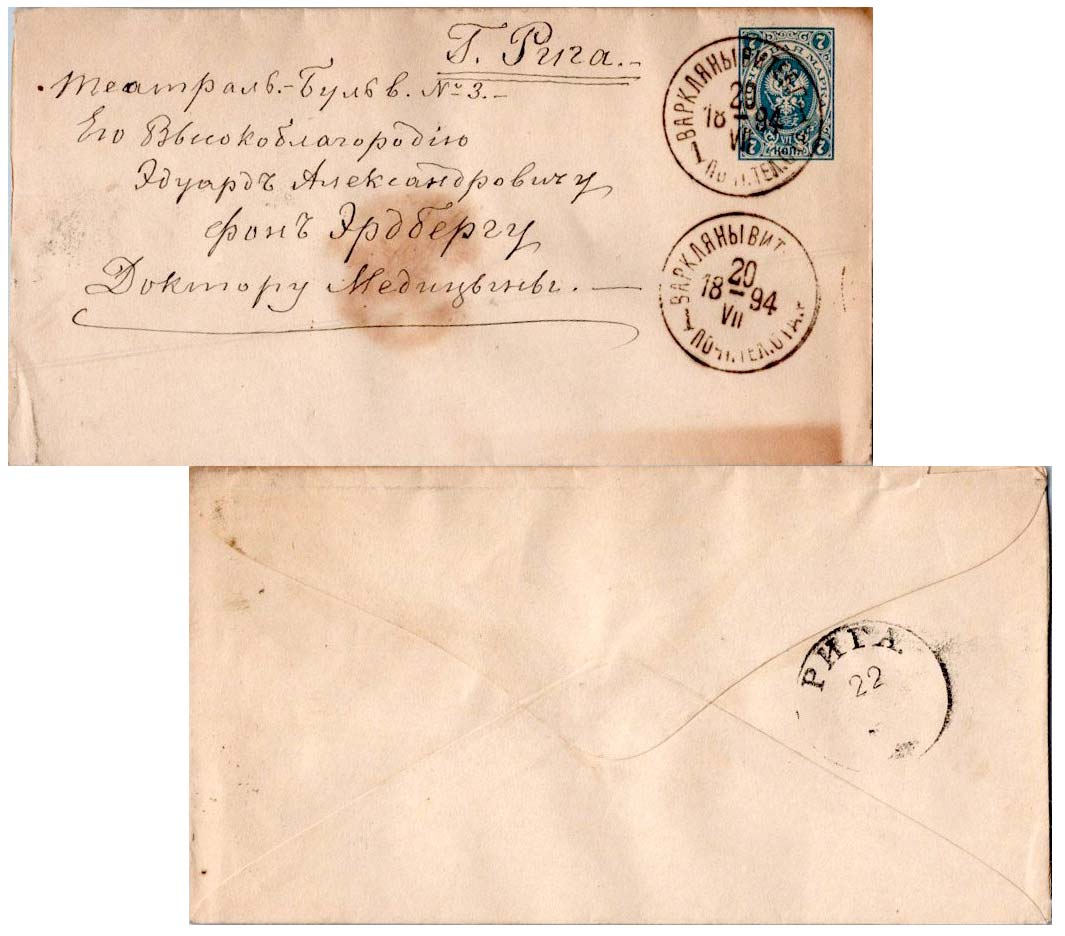 Г. Рига.-
Театраль.-Бульв. № 3.-
Его Высокоблагородію
Эдуардъ Александровичу
фонъ Эрдбергу
Доктору Медицыны. —
7 7
МАРКА
VII
7 КОП. 7
ВАРКЛЯНЫ ВИТ
20
18 94
VII
ПОЧТ. ТЕЛ.
ВАРКЛЯНЫ ВИТ.
20
18 94
VII
ПОЧТ. ТЕЛ. ОТД.
РИГА
22